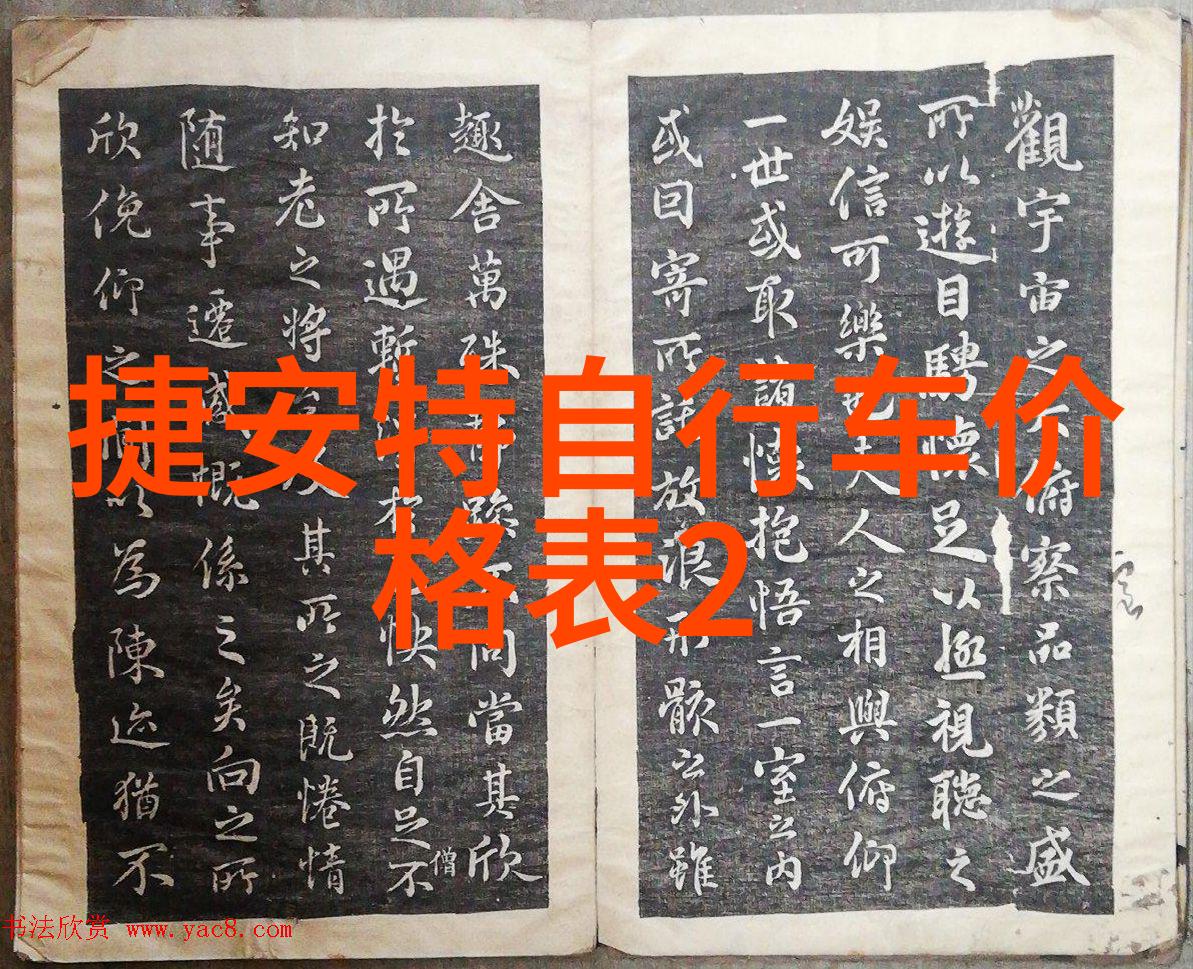 捷安特自行车价
格表2
觀宇宙之俯察品類之盛
所以遊目騁懷足以極視聽之
娛信可樂也夫人之相與俯仰
一世或取諸懷抱悟言一室之内
或因寄所託放浪形骸之外雖
趣舍萬殊靜躁同當其欣
僧
於所遇暫於快然自足不
知老之將及其所之既惓情
随事遷感慨係之矣向之所
欣俛仰之間以為陳迹猶不
书法欣赏 www.yac8.com